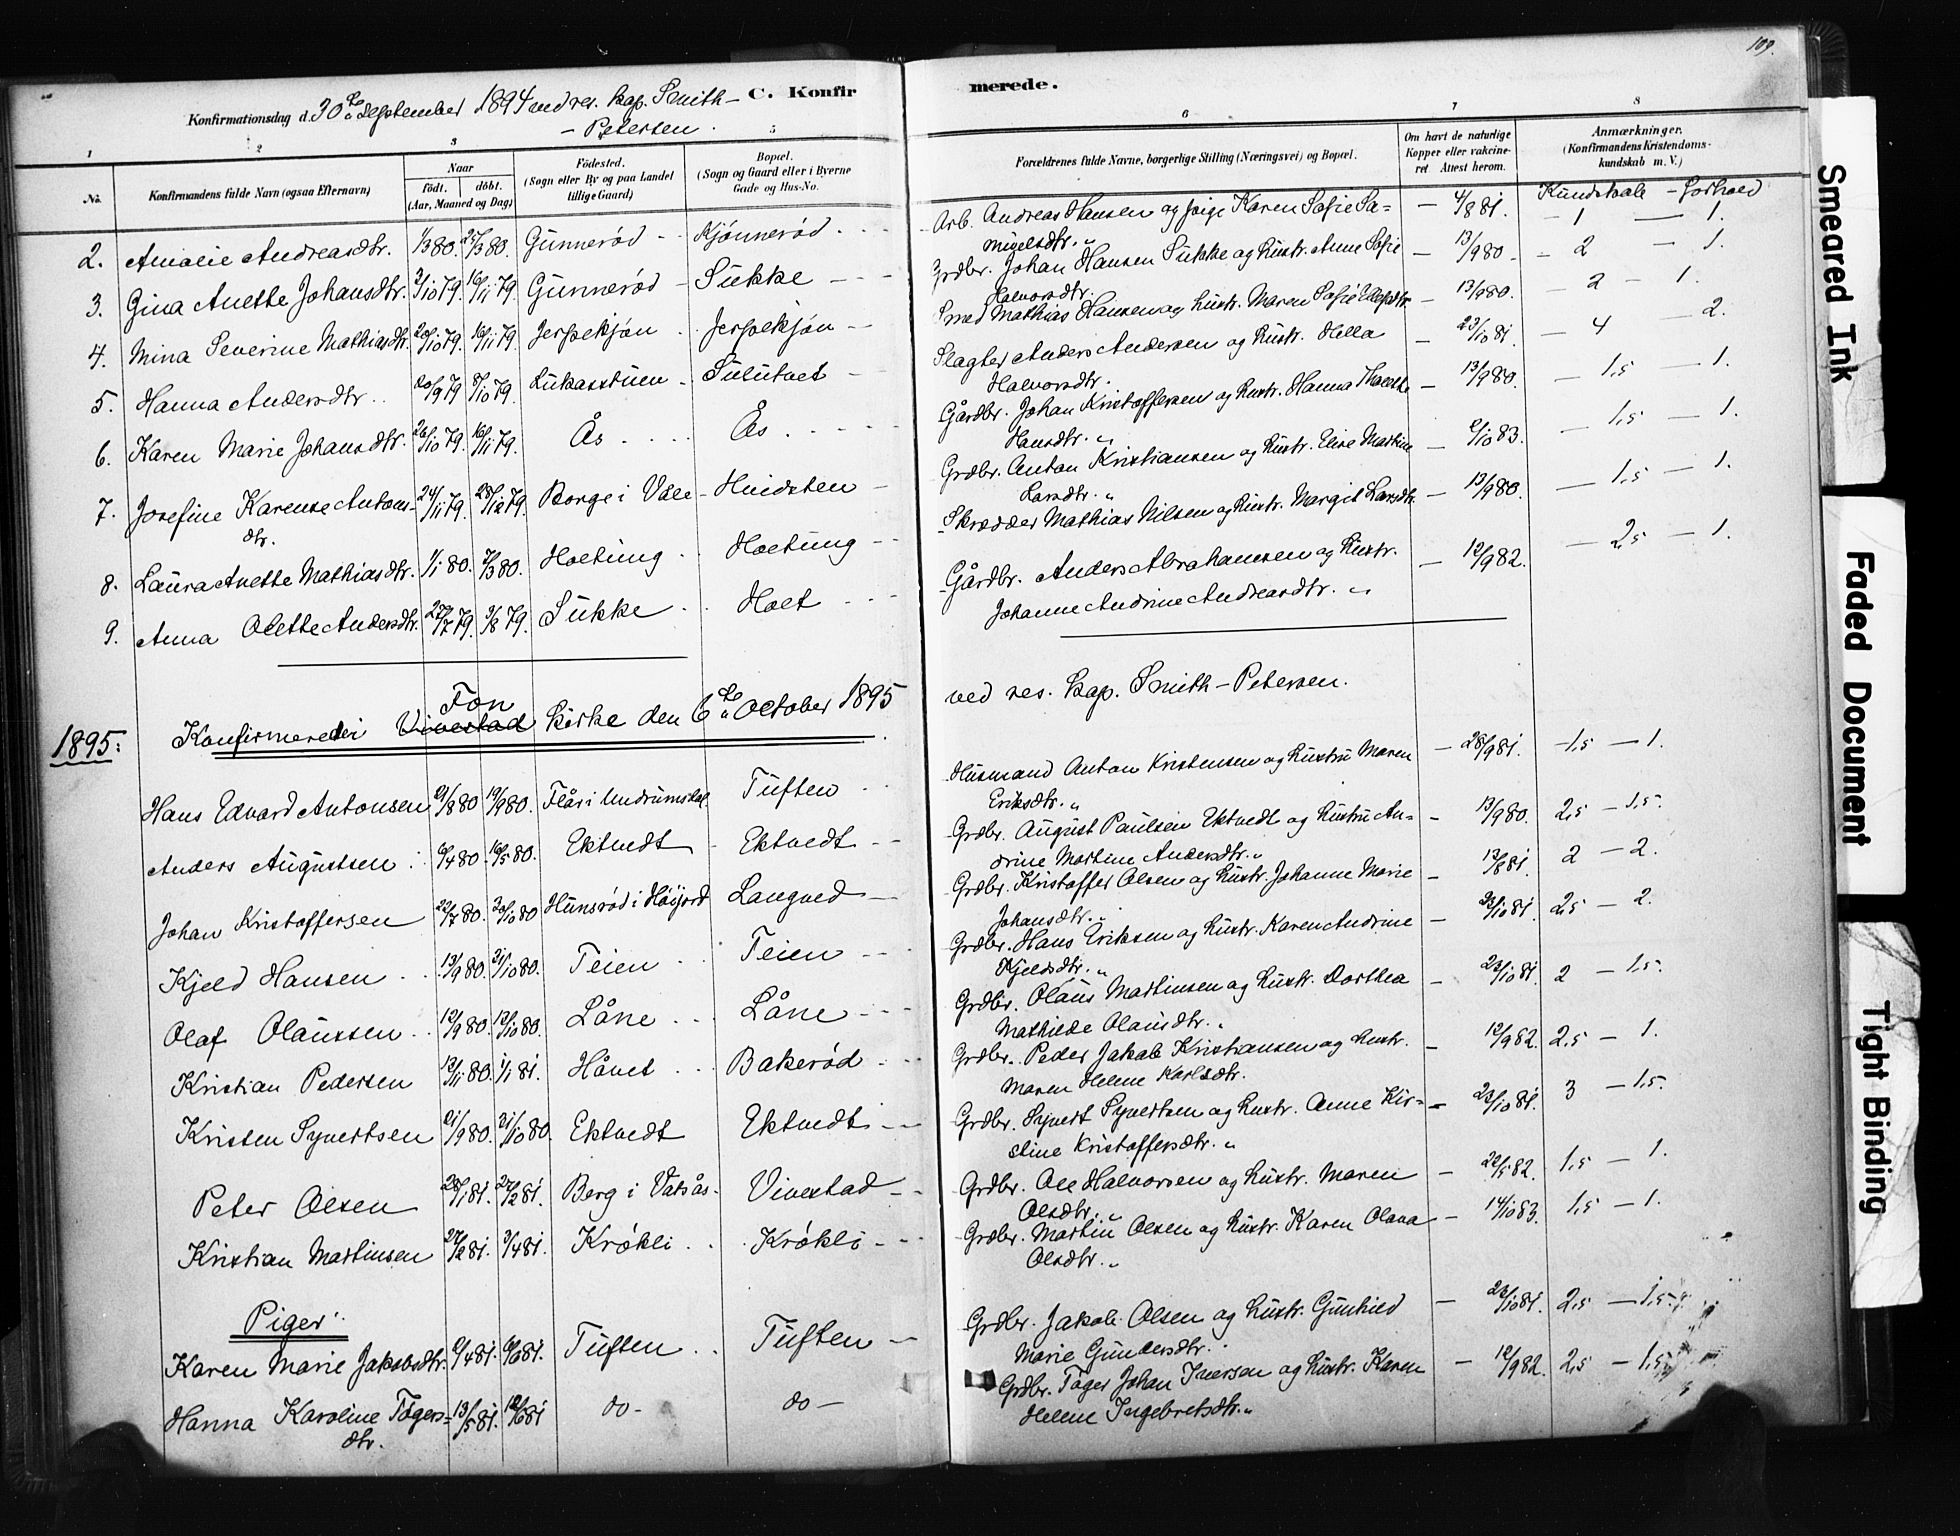 109.
Konfirmationsdag d. 30te September 1894 ved res. kap. Smith-
- Petersen.
C. Konfirmerede.
1 2 3 5 6 7 8
No. Konfirmandens fulde Navn (ogsaa Efternavn)
Naar
født. døbt.
(Aar, Maaned og Dag)
Fødested.
(Sogn eller By og paa Landet
tillige Gaard)
Bopæl.
(Sogn og Gaard eller i Byerne
Gade og Hus-No.
Forældrenes fulde Navne, borgerlige Stilling (Næringsvei) og Bopæl.
Om havt de naturlige
Kopper eller vakcine-
ret Attest herom.
Anmærkninger.
(Konfirmandens Kristendoms-
kundskab m. V.)
Kundskab - Forhold
2. Amalie Andreasdtr. 1/3 80. 28/3 80. Gunnerød - Kjønnerød - Arb. Andreas Hansen og pige Karen Sofie Sa= - 4/8 81. - 1 - 1.
migelsdtr. "
3. Gina Anette Johansdtr. 3/10 79. 16/11 79. Gunnerød - Sukke - Grdbr. Johan Hansen Sukke og hustr. Anne Sofie - 13/9 80. - 2 - 1.
Halvorsdtr.
4. Mina Severine Mathiasdtr. 20/10 79. 16/11 79. Jerpekjøn - Jerpekjøn - Smed Mathias Hansen og hustr. Maren Sofie Ellefsdtr. - 13/9 80. - 2 - 1.
5. Hanna Andersdtr. 20/9 79 8/10 79. Lukasstuen - Sulutvet - Slagter Anders Andersen og hustr. Hella - 23/10 81. - 4 - 2.
Halvorsdtr.
6. Karen Marie Johansdtr. 26/10 79. 16/11 79. Ås Ås Gårdbr. Johan Kristoffersen og hustr. Hanna Thorette - 13/9 80. - 1,5 - 1.
Hansdtr. "
7. Josefine Karense Antons- 24/11 79. 28/12 79. Borge i Vale - Hvidsten - Grdbr. Anton Kristiansen og hustr. Elise Martine - 2/10 83. - 1,5 - 1.
dtr. Larsdtr. "
8. Laura Anette Mathiasdtr. 1/1 80. 7/3 80. Holtung Holtung - Skrædder Mathias Nilsen og hustr. Margit Larsdtr. - 13/9 80. - 1,5 - 1.
9. Anna Olette Andersdtr. 27/7 79. 3/8 79. Sukke Holt Gårdbr. Anders Abrahamsen og hustr. - 12/9 82. - 2,5 - 1.
Johanne Andrine Andreasdtr. "
1895: Konfirmerede i Fon Vivestad kirke den 6te October 1895 ved res. kap. Smith-Petersen.
Hans Edvard Antonsen 21/8 80 19/9 80. Flår i Undrumsdal Tuften Husmand Anton Kristensen og hustru Maren - 28/9 81. - 1,5 - 1.
Eriksdtr. "
Anders Augustsen 6/4 80. 16/5 80. Ektvedt - Ektvedt - Grdbr. August Paulsen Ektvedt og hustru An= - 13/9 80. 2,5 - 1,5.
drine Martine Andersdtr. "
Johan Kristoffersen 22/7 80. 30/10 80 Hunsrød i Høijord Langved - Grdbr. Kristoffer Olsen og hustr. Johanne Marie - 13/8 81. 2 - 2.
Johansdtr. "
Kjeld Hansen 13/9 80. 31/10 80. Teien Teien - Grdbr. Hans Eriksen og hustr. Karen Andrine - 23/10 81. 2,5 - 2.
Kjeldsdtr. "
Olaf Olaussen 12/9 80. 12/10 80. Låne Låne Grdbr. Olaus Martinsen og hustr. Dorthea - 23/10 81. 2 - 1,5.
Mathilde Olausdtr. "
Kristian Pedersen 13/11 80. 1/1 81. Håvet Bakerød Grdbr. Peder Jakob Kristiansen og hustr. - 12/9 82. 2,5 - 1.
Maren Helene Karlsdtr.
Kristen Syvertsen 21/9 80. 31/10 80. Ektvedt Ektvedt - Grdbr. Syvert Syvertsen og hustr. Anne Kir= - 23/10 81. 3 - 1,5.
stine Kristoffersdtr. "
Peter Olsen 28/1 81. 27/2 81. Berg i Vatsås - Vivestad - Grdbr. Ole Halvorsen og hustr. Maren - 22/5 82. 1,5 - 1.
Olsdtr. "
Kristian Martinsen 27/2 81. 3/4 81. Krøkli Krøkli - Grdbr. Martin Olsen og hustr. Karen Olava - 14/10 83. 1,5 - 1.
Olsdtr. "
Piger.
Karen Marie Jakobsdtr. 6/4 81. 6/6 81. Tuften Tuften - Grdbr. Jakob Olsen og hustr. Gunhild - 23/10 81. 2,5 - 1,5.
Marie Gundersdtr.
Hanna Karoline Tøgers= 13/5 81. 12/6 81 do - do - Grdbr. Tøger Johan Iversen og hustr. Karen - 12/9 82. 2,5 - 1,5
dtr. Helene Ingebretsdtr. "
Smeared Ink
Faded Document
Tight Binding